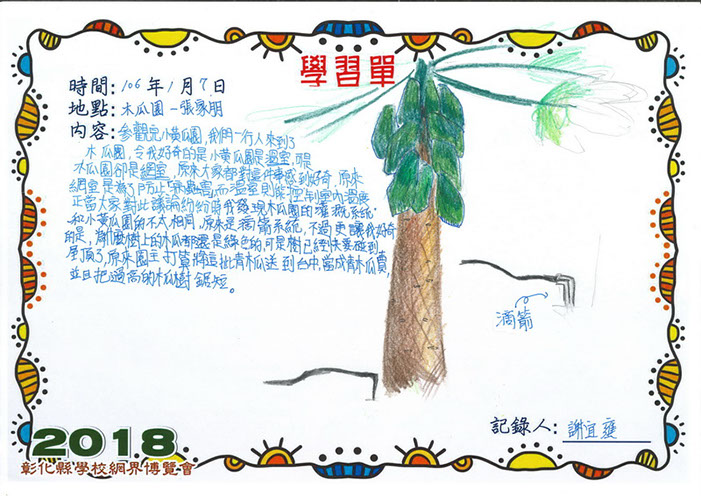 學習單
時間: 106年1月7日
地點: 木瓜園-張家朋
內容: 參觀完小黃瓜園,我們一行人來到了
木瓜園,令我好奇的是小黃瓜園是溫室,可是
木瓜園卻是網室,原來大家都對這件事感到好奇,原來
網室是為了防止病蟲害,而溫室則能控制室內溫度
正當大家對此議論紛紛時,我發現木瓜園的灌溉系統
和小黃瓜園的不太相同,原來是滴箭系統,不過更讓我好奇
的是,為什麼樹上的木瓜都還是綠色的,可是樹已經快要碰到
屋頂了,原來園主打算將這批青木瓜送到台中,當成青木瓜賣,
並且把過高的木瓜樹鋸短。
滴箭
記錄人: 謝宜
2018
彰化縣學校網界博覽會